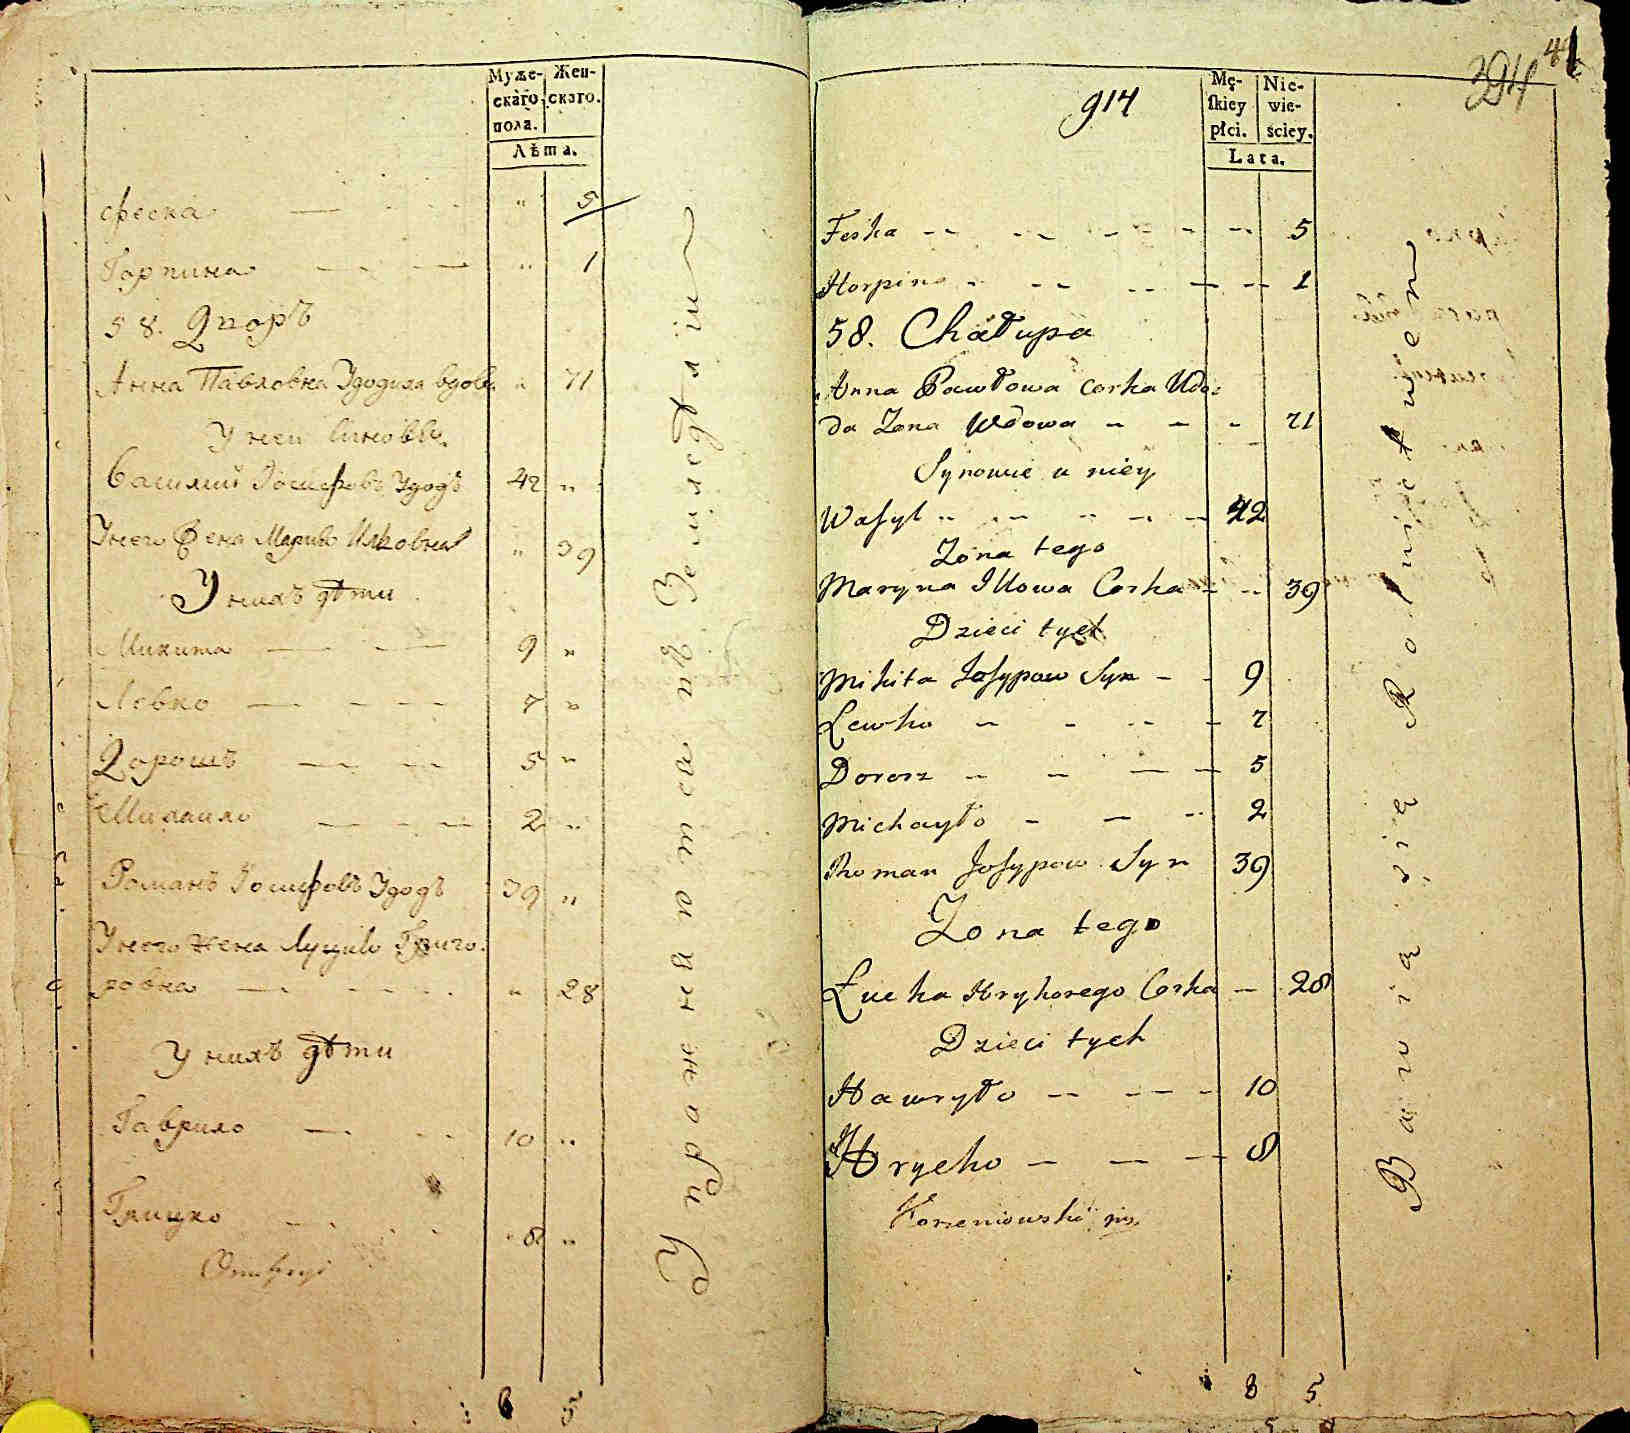 Муже-
скаго
пола.
Жен-
скаго.
Лѣта.
феска — - - - " 5
Горпина — - — " 1
58. Дворъ
Анна Павловна Удодиха вдова " 71
У неи синовъ
Василий Иосифовъ Удодъ 42 "
У него Жена Марина Илковна " 39
У нихъ дѣти
Микита — - — 9 "
Левко — - - - 7 "
Дорошъ — - - 5 "
Михайло — - - — 2 "
Романъ Иосифовъ Удодъ 39 "
У него жена Луция Григо-
ровна — - - - - " 28
У нихъ дѣти
Гаврило — - - 10 "
Грицко - - - 8 "
Упражняются въ Земледѣлии
6 5
914
394
41
Mę-
skiey
płci.
Nie-
wie-
ściey.
Lata.
Feska -- -- - - -- 5
Horpina - -- -- — -- 1
58. Chałupa
Anna Pawłowa corka Udo-
da Zona Wdowa - - - 71
Synowie u niey
Wasyl -- -- -- - - 42
Zona tego
Maryna Illowa Corka - -- 39
Dzieci tych
Mikita Josypow Syn - - 9
Lewko - - -- - 7
Dorosz - - — - 5
Michayło - — -- 2
Roman Josypow Syn 39
Zona tego
Łucka Hryhorego Corka — 28
Dzieci tych
Hawryło -- - -- - 10
Hrycko — — -- 8
Korzeniowski
Bawią się Rolnictwem
8 5